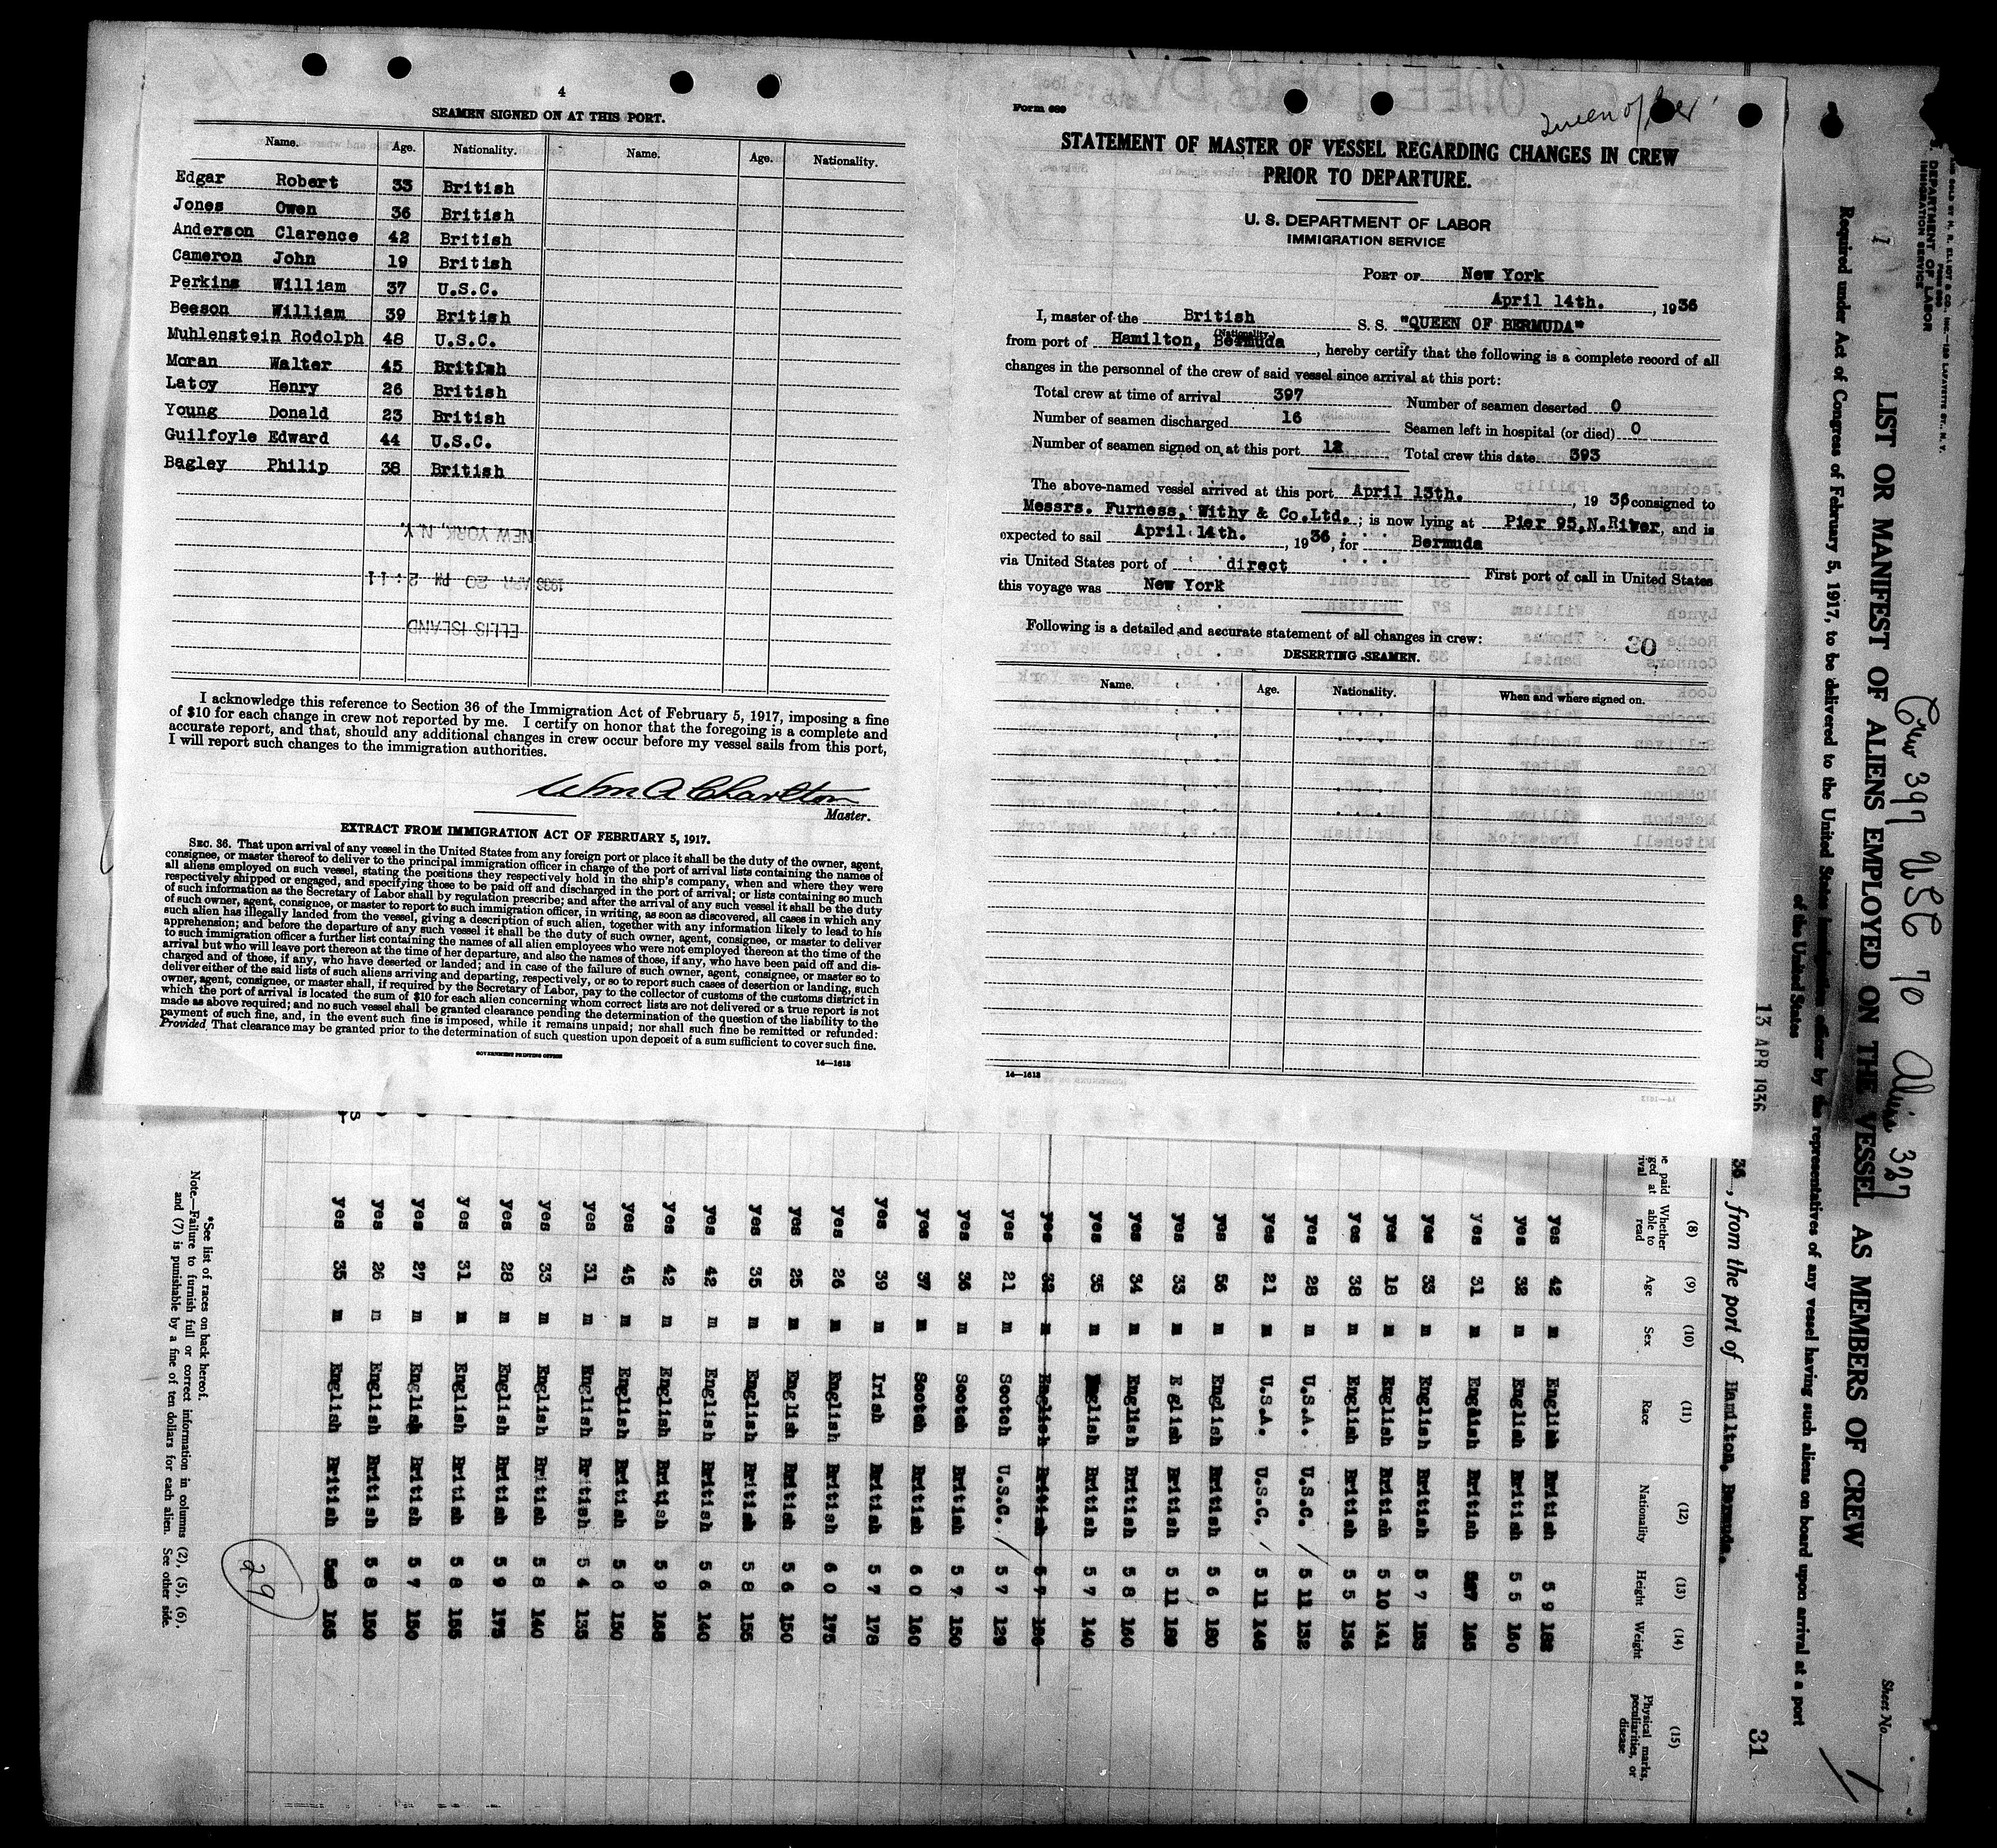 4
SEAMEN SIGNED ON AT THIS PORT.
Name. Age. Nationality. Name. Age. Nationality.
Edgar Robert 33 British
Jones Owen 36 British
Anderson Clarence 42 British
Cameron John 19 British
Perkins William 37 U.S.C.
Beeson William 39 British
Muhlenstein Rodolph 48 U.S.C.
Moran Walter 45 British
Latoy Henry 26 British
Young Donald 23 British
Guilfoyle Edward 44 U.S.C.
Bagley Philip 38 British
NEW YORK, N.Y.
1936 APR 20 PM 2:11
ELLIS ISLAND
I acknowledge this reference to Section 36 of the Immigration Act of February 5, 1917, imposing a fine
of $10 for each change in crew not reported by me. I certify on honor that the foregoing is a complete and
accurate report, and that, should any additional changes in crew occur before my vessel sails from this port,
I will report such changes to the immigration authorities.
Wm A Charlton
Master.
EXTRACT FROM IMMIGRATION ACT OF FEBRUARY 5, 1917.
SEC. 36. That upon arrival of any vessel in the United States from any foreign port or place it shall be the duty of the owner, agent,
consignee, or master thereof to deliver to the principal immigration officer in charge of the port of arrival lists containing the names of
all aliens employed on such vessel, stating the positions they respectively hold in the ship's company, when and where they were
respectively shipped or engaged, and specifying those to be paid off and discharged in the port of arrival; or lists containing so much
of such information as the Secretary of Labor shall by regulation prescribe; and after the arrival of any such vessel it shall be the duty
of such owner, agent, consignee, or master to report to such immigration officer, in writing, as soon as discovered, all cases in which any
such alien has illegally landed from the vessel, giving a description of such alien, together with any information likely to lead to his
apprehension; and before the departure of any such vessel it shall be the duty of such owner, agent, consignee, or master to deliver
to such immigration officer a further list containing the names of all alien employees who were not employed thereon at the time of the
arrival but who will leave port thereon at the time of her departure, and also the names of those, if any, who have been paid off and dis-
charged and of those, if any, who have deserted or landed; and in case of the failure of such owner, agent, consignee, or master so to
deliver either of the said lists of such aliens arriving and departing, respectively, or so to report such cases of desertion or landing, such
owner, agent, consignee, or master shall, if required by the Secretary of Labor, pay to the collector of customs of the customs district in
which the port of arrival is located the sum of $10 for each alien concerning whom correct lists are not delivered or a true report is not
made as above required; and no such vessel shall be granted clearance pending the determination of the question of the liability to the
payment of such fine, and, in the event such fine is imposed, while it remains unpaid; nor shall such fine be remitted or refunded:
Provided, That clearance may be granted prior to the determination of such question upon deposit of a sum sufficient to cover such fine.
GOVERNMENT PRINTING OFFICE
14—1613
Form 689
Queen of Ber
STATEMENT OF MASTER OF VESSEL REGARDING CHANGES IN CREW
PRIOR TO DEPARTURE.
U. S. DEPARTMENT OF LABOR
IMMIGRATION SERVICE
PORT OF New York
April 14th., 1936
I, master of the British S. S. "QUEEN OF BERMUDA"
(Nationality.)
from port of Hamilton, Bermuda, hereby certify that the following is a complete record of all
changes in the personnel of the crew of said vessel since arrival at this port:
Total crew at time of arrival 397 Number of seamen deserted 0
Number of seamen discharged 16 Seamen left in hospital (or died) 0
Number of seamen signed on at this port 12 Total crew this date 393
The above-named vessel arrived at this port April 13th., 1936 consigned to
Messrs. Furness, Withy & Co.Ltd.; is now lying at Pier 95,N.River, and is
expected to sail April 14th., 1936, for Bermuda
via United States port of direct First port of call in United States
this voyage was New York
Following is a detailed and accurate statement of all changes in crew:
30
DESERTING SEAMEN.
Name. Age. Nationality. When and where signed on.
14—1613
1
DEPARTMENT OF LABOR
IMMIGRATION SERVICE
Crew 397 USC 70 Aliens 327
LIST OR MANIFEST OF ALIENS EMPLOYED ON THE VESSEL AS MEMBERS OF CREW
Sheet No. 1
Required under Act of Congress of February 5, 1917, to be delivered to the United States immigration officer by the representatives of any vessel having such aliens on board upon arrival at a port
of the United States
13 APR 1936
31
36, from the port of Hamilton, Bermuda.
(8) (9) (10) (11) (12) (13) (14) (15)
Whether able to read Age Sex Race Nationality Height Weight Physical marks, peculiarities, or disease
yes 42 m English British 5 9 162
yes 32 m English British 5 5 160
yes 31 m English British 5 7 165
yes 33 m English British 5 7 163
yes 18 m English British 5 10 141
yes 38 m English British 5 5 136
yes 28 m U.S.A. U.S.C. 5 11 132
yes 21 m U.S.A. U.S.C. 5 11 148
yes 56 m English British 5 6 180
yes 33 m E glish British 5 11 189
yes 34 m English British 5 8 160
yes 35 m English British 5 7 140
yes 32 m English British 5 7
yes 21 m Scotch U.S.C. 5 7 129
yes 36 m Scotch British 5 7 150
yes 37 m Scotch British 6 0 160
yes 39 m Irish British 5 7 178
yes 26 m English British 6 0 175
yes 25 m English British 5 6 150
yes 35 m English British 5 8 155
yes 42 m English British 5 6 140
yes 42 m English British 5 9 168
yes 45 m English British 5 6 150
yes 31 m English British 5 4 135
yes 33 m English British 5 8 140
yes 28 m English British 5 9 175
yes 31 m English British 5 8 155
yes 27 m English British 5 7 150
yes 26 m English British 5 8 150
yes 35 m English British 5 8 165
29
*See list of races on back hereof.
Note.—Failure to furnish full or correct information in columns (2), (5), (6),
and (7) is punishable by a fine of ten dollars for each alien. See other side.